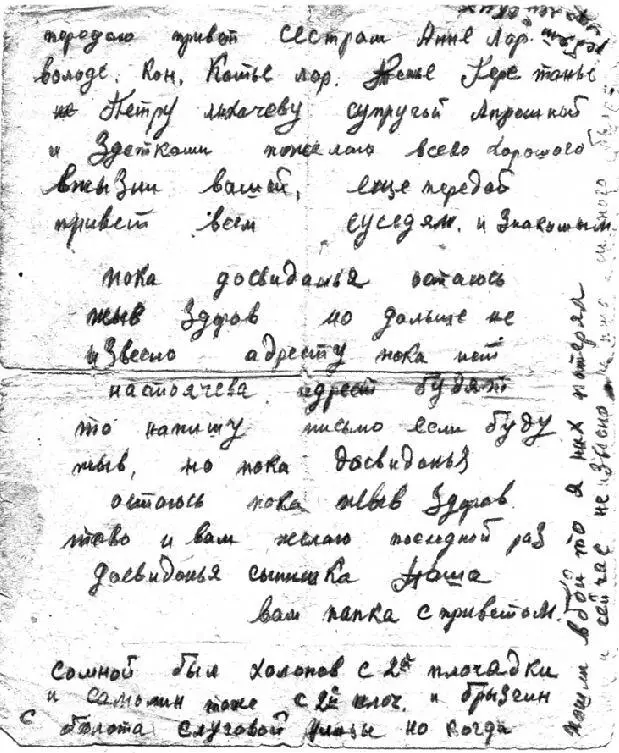 передаю привет сестрам Анне Лар.
володе, Кон, Катье лар. Гере танье
Петру лихачеву супругой Апрошкой
и Здетками пожелаю всево хорошого
вжызни вашей, еще передай
привет всем суседям. и Знакомым
пока досвиданья остаюсь
жыв Здоров но дальше не
иЗвесно адресту пока нет
настоячева адрест будят
то напишу письмо если буду
жыв, но пока досвиданья
остаюсь пока жыв Здоров
тово и вам желаю последной раЗ
досвиданья сынишка
вам папка с приветом.
сомной был Холопов с 2ой плочадки
и самолин тоже с 2ой плоч. и брызгин
с болота слуговой улицы но когда
пошли в бой то я них потерял
и сейчас не иЗвесно